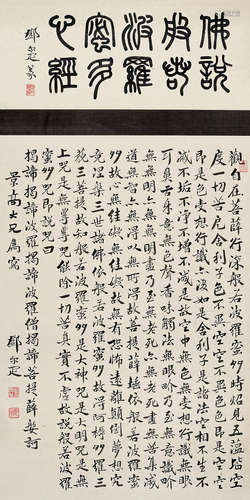 佛說
般若
波羅
密多
心經
鄧尔疋篆
觀自在菩薩行深般若波羅蜜多時照見五蘊皆空
度一切苦厄舍利子色不異空空不異色色即是空空
即是色受想行識亦復如是舍利子是諸法空相不生不
滅不垢不淨不增不減是故空中無色無受想行識無眼
耳鼻舌身意無色聲香味觸法無眼界乃至無意識界
無無明亦無無明盡乃至無老死亦無老死盡無苦集滅
道無智亦無得以無所得故菩提薩埵依般若波羅蜜
多故心無罣礙無罣礙故無有恐怖遠離顛倒夢想究
竟涅槃三世諸佛依般若波羅蜜多故得阿耨多羅三
藐三菩提故知般若波羅蜜多是大神咒是大明咒是無
上咒是無等等咒能除一切苦真實不虛故說般若波羅
蜜多咒即說咒曰
揭諦揭諦波羅揭諦波羅僧揭諦菩提薩婆訶
景高大兄屬寫
鄧尔疋